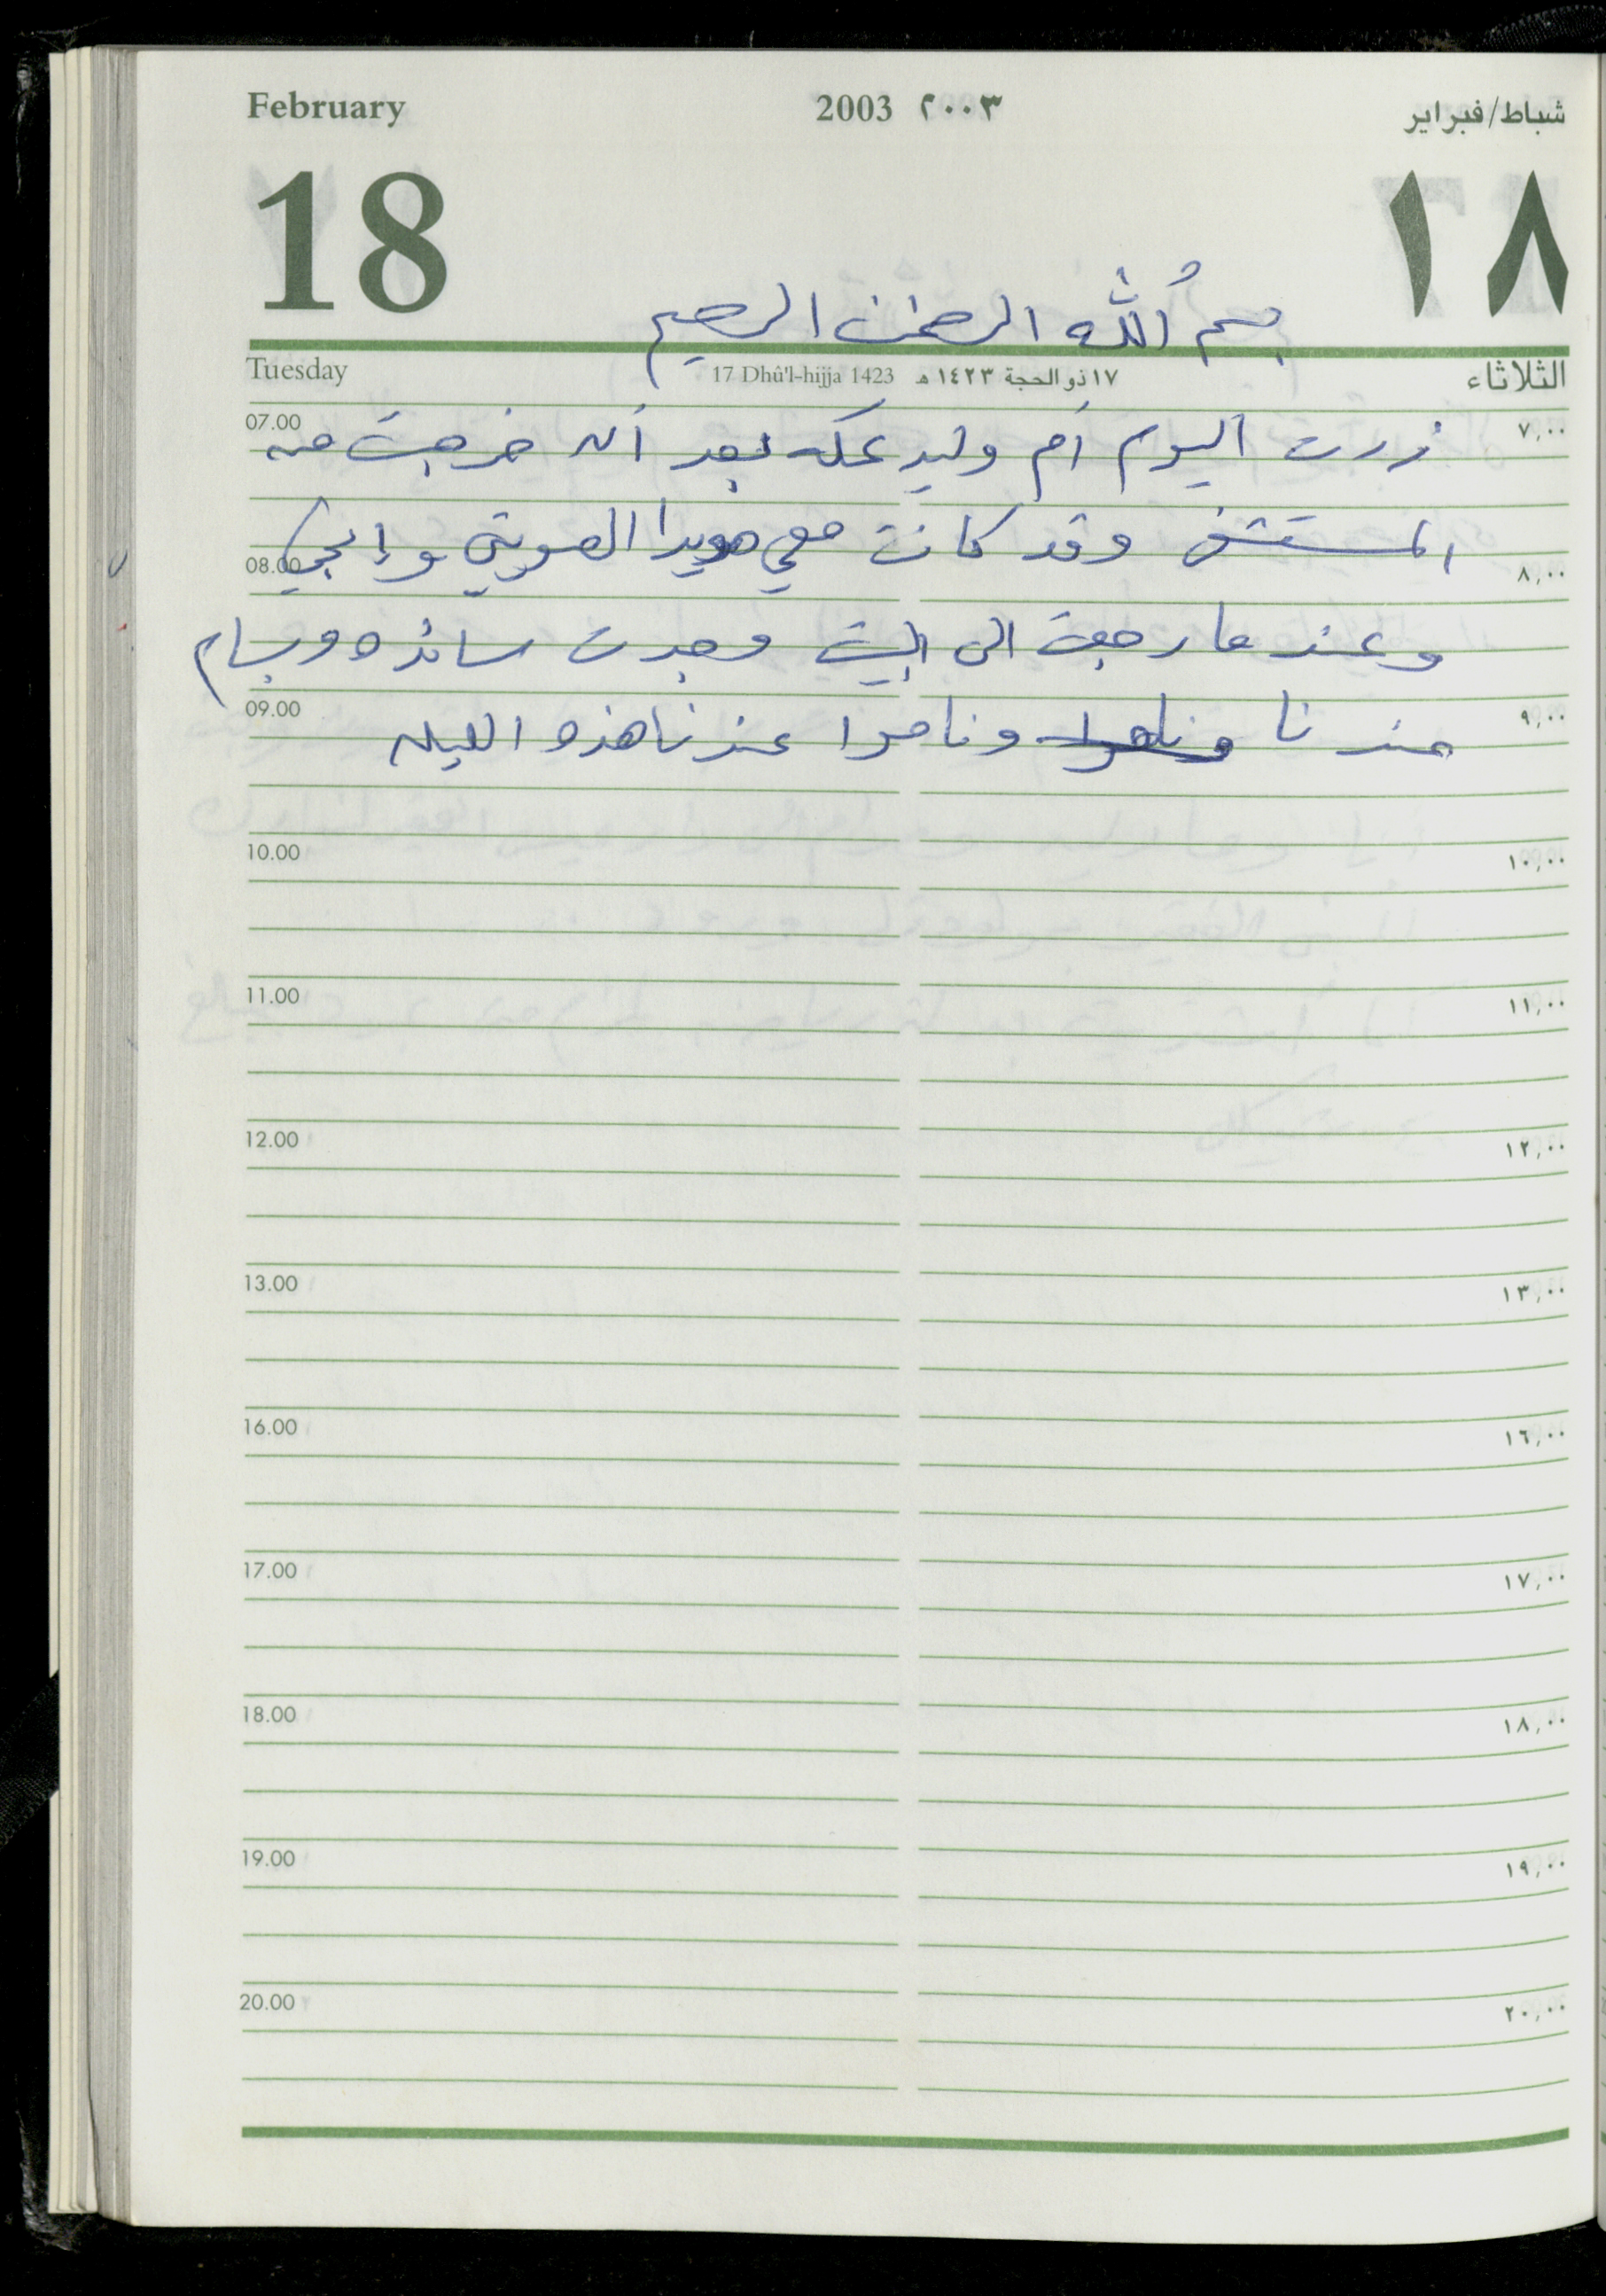 February 2003 ٢٠٠٣ شباط/فبراير
18 ١٨
بسم الله الرحمن الرحيم
Tuesday 17 Dhû'l-hijja 1423 ١٧ ذو الحجة ١٤٢٣ هـ الثلاثاء
07.00 ٧,٠٠
زرت اليوم أم وليد عكه بعد أن خرجت من
المستشفى وقد كانت معي هويدا الصويتي و
08.00 ٨,٠٠
وعندما رجعت الى البيت وجدت سائده وبسام
09.00 ٩,٠٠
عندنا وناموا وناموا عندنا هذه الليله
10.00 ١٠,٠٠
11.00 ١١,٠٠
12.00 ١٢,٠٠
13.00 ١٣,٠٠
16.00 ١٦,٠٠
17.00 ١٧,٠٠
18.00 ١٨,٠٠
19.00 ١٩,٠٠
20.00 ٢٠,٠٠